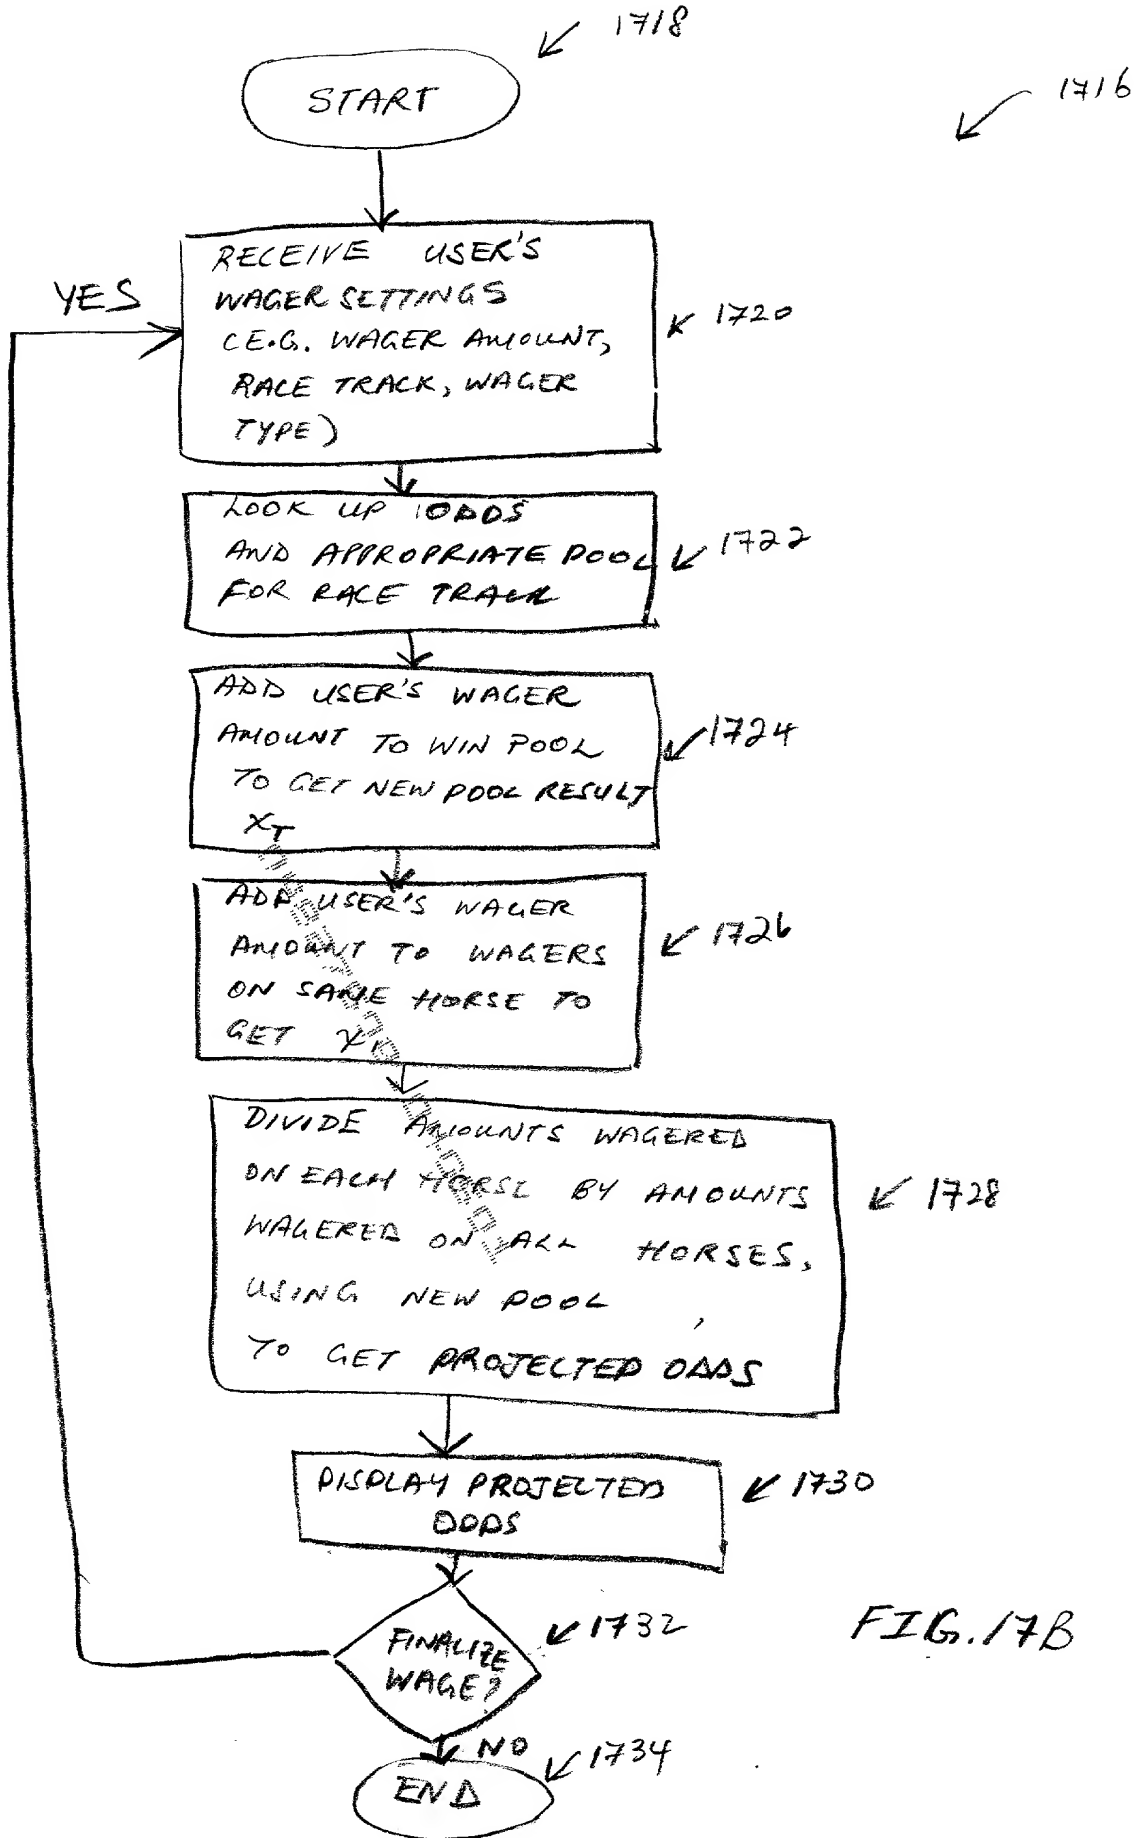 1718
START
1716
YES
RECEIVE USER'S
WAGER SETTINGS
(E.G. WAGER AMOUNT,
RACE TRACK, WAGER
TYPE)
1720
LOOK UP ODDS
AND APPROPRIATE POOL
FOR RACE TRACK
1722
ADD USER'S WAGER
AMOUNT TO WIN POOL
TO GET NEW POOL RESULT
XT
1724
ADD USER'S WAGER
AMOUNT TO WAGERS
ON SAME HORSE TO
GET X1
1726
DIVIDE AMOUNTS WAGERED
ON EACH HORSE BY AMOUNTS
WAGERED ON ALL HORSES,
USING NEW POOL,
TO GET PROJECTED ODDS
1728
DISPLAY PROJECTED
ODDS
1730
FINALIZE
WAGE?
1732
FIG. 17B
NO
1734
END